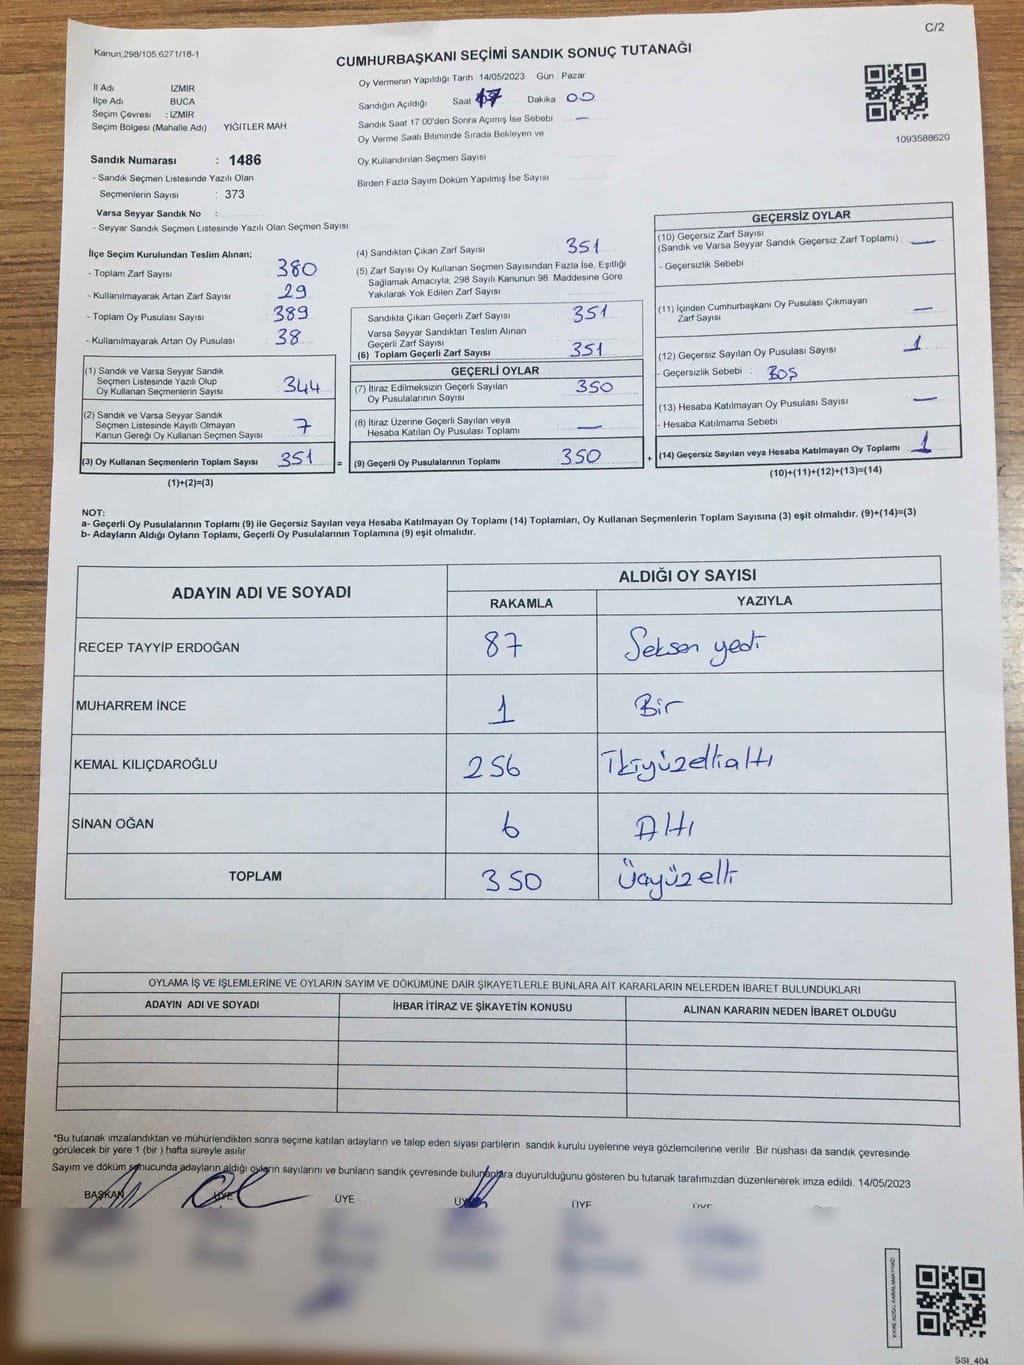 C/2
Kanun;298/105;6271/18-1
CUMHURBAŞKANI SEÇİMİ SANDIK SONUÇ TUTANAĞI
İl Adı İZMİR
İlçe Adı BUCA
Seçim Çevresi : İZMİR
Seçim Bölgesi (Mahalle Adı) : YİĞİTLER MAH
Sandık Numarası : 1486
- Sandık Seçmen Listesinde Yazılı Olan
Seçmenlerin Sayısı : 373
Varsa Seyyar Sandık No :
- Seyyar Sandık Seçmen Listesinde Yazılı Olan Seçmen Sayısı
Oy Vermenin Yapıldığı Tarih 14/05/2023 Gün : Pazar
Sandığın Açıldığı Saat 17 Dakika 00
Sandık Saat 17 00'den Sonra Açımış İse Sebebi —
Oy Verme Saati Bitiminde Sırada Bekleyen ve
Oy Kullandırılan Seçmen Sayısı
Birden Fazla Sayım Döküm Yapılmış İse Sayısı
1093588620
İlçe Seçim Kurulundan Teslim Alınan;
- Toplam Zarf Sayısı 380
- Kullanılmayarak Artan Zarf Sayısı 29
- Toplam Oy Pusulası Sayısı 389
- Kullanılmayarak Artan Oy Pusulası 38
(1) Sandık ve Varsa Seyyar Sandık
Seçmen Listesinde Yazılı Olup
Oy Kullanan Seçmenlerin Sayısı 344
(2) Sandık ve Varsa Seyyar Sandık
Seçmen Listesinde Kayıtlı Olmayan
Kanun Gereği Oy Kullanan Seçmen Sayısı 7
(3) Oy Kullanan Seçmenlerin Toplam Sayısı 351 =
(1)+(2)=(3)
(4) Sandıktan Çıkan Zarf Sayısı 351
(5) Zarf Sayısı Oy Kullanan Seçmen Sayısından Fazla İse, Eşitliği
Sağlamak Amacıyla, 298 Sayılı Kanunun 98 Maddesine Göre
Yakılarak Yok Edilen Zarf Sayısı
Sandıkta Çıkan Geçerli Zarf Sayısı 351
Varsa Seyyar Sandıktan Teslim Alınan
Geçerli Zarf Sayısı
(6) Toplam Geçerli Zarf Sayısı 351
GEÇERLİ OYLAR
(7) İtiraz Edilmeksizin Geçerli Sayılan
Oy Pusulalarının Sayısı 350
(8) İtiraz Üzerine Geçerli Sayılan veya
Hesaba Katılan Oy Pusulası Toplamı —
(9) Geçerli Oy Pusulalarının Toplamı 350 +
GEÇERSİZ OYLAR
(10) Geçersiz Zarf Sayısı
(Sandık ve Varsa Seyyar Sandık Geçersiz Zarf Toplamı) : —
- Geçersizlik Sebebi
(11) İçinden Cumhurbaşkanı Oy Pusulası Çıkmayan
Zarf Sayısı —
(12) Geçersiz Sayılan Oy Pusulası Sayısı 1
- Geçersizlik Sebebi : BOŞ
(13) Hesaba Katılmayan Oy Pusulası Sayısı —
- Hesaba Katılmama Sebebi
(14) Geçersiz Sayılan veya Hesaba Katılmayan Oy Toplamı 1
(10)+(11)+(12)+(13)=(14)
NOT:
a- Geçerli Oy Pusulalarının Toplamı (9) ile Geçersiz Sayılan veya Hesaba Katılmayan Oy Toplamı (14) Toplamları, Oy Kullanan Seçmenlerin Toplam Sayısına (3) eşit olmalıdır. (9)+(14)=(3)
b- Adayların Aldığı Oyların Toplamı, Geçerli Oy Pusulalarının Toplamına (9) eşit olmalıdır.
ADAYIN ADI VE SOYADI
ALDIĞI OY SAYISI
RAKAMLA YAZIYLA
RECEP TAYYİP ERDOĞAN 87 Seksen yedi
MUHARREM İNCE 1 Bir
KEMAL KILIÇDAROĞLU 256 İkiyüzellialtı
SİNAN OĞAN 6 Altı
TOPLAM 350 Üçyüzelli
OYLAMA İŞ VE İŞLEMLERİNE VE OYLARIN SAYIM VE DÖKÜMÜNE DAİR ŞİKAYETLERLE BUNLARA AİT KARARLARIN NELERDEN İBARET BULUNDUKLARI
ADAYIN ADI VE SOYADI İHBAR İTİRAZ VE ŞİKAYETİN KONUSU ALINAN KARARIN NEDEN İBARET OLDUĞU
*Bu tutanak imzalandıktan ve mühürlendikten sonra seçime katılan adayların ve talep eden siyasi partilerin sandık kurulu üyelerine veya gözlemcilerine verilir. Bir nüshası da sandık çevresinde
görülecek bir yere 1 (bir ) hafta süreyle asılır
Sayım ve döküm sonucunda adayların aldığı oyların sayılarını ve bunların sandık çevresinde bulunanlara duyurulduğunu gösteren bu tutanak tarafımızdan düzenlenerek imza edildi. 14/05/2023
BAŞKAN ÜYE ÜYE ÜYE ÜYE ÜYE
SSI_404